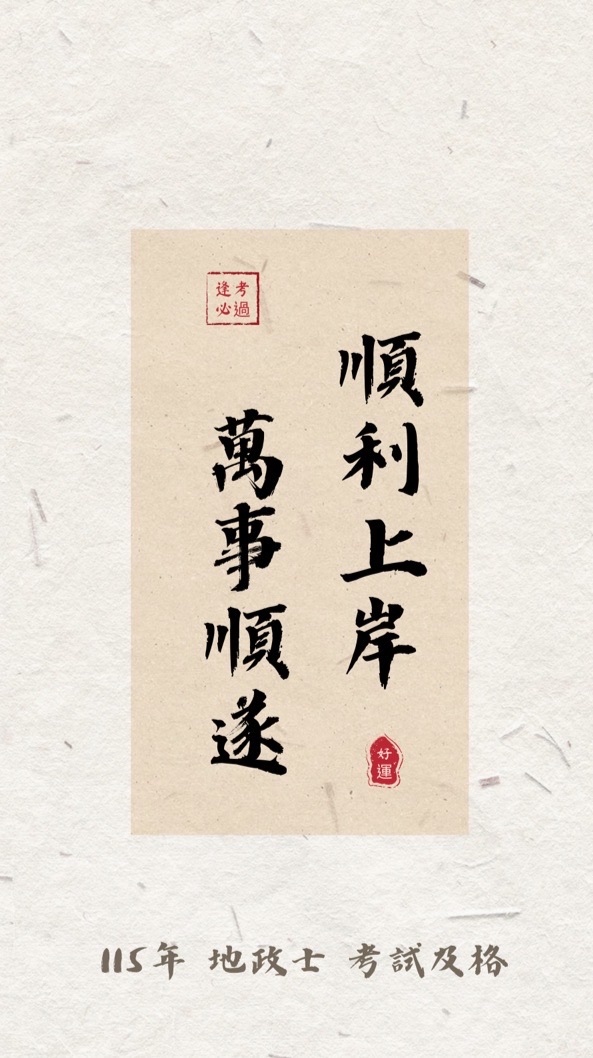 順利上岸
萬事順遂
考過
逢必
好運
115年 地政士 考試及格